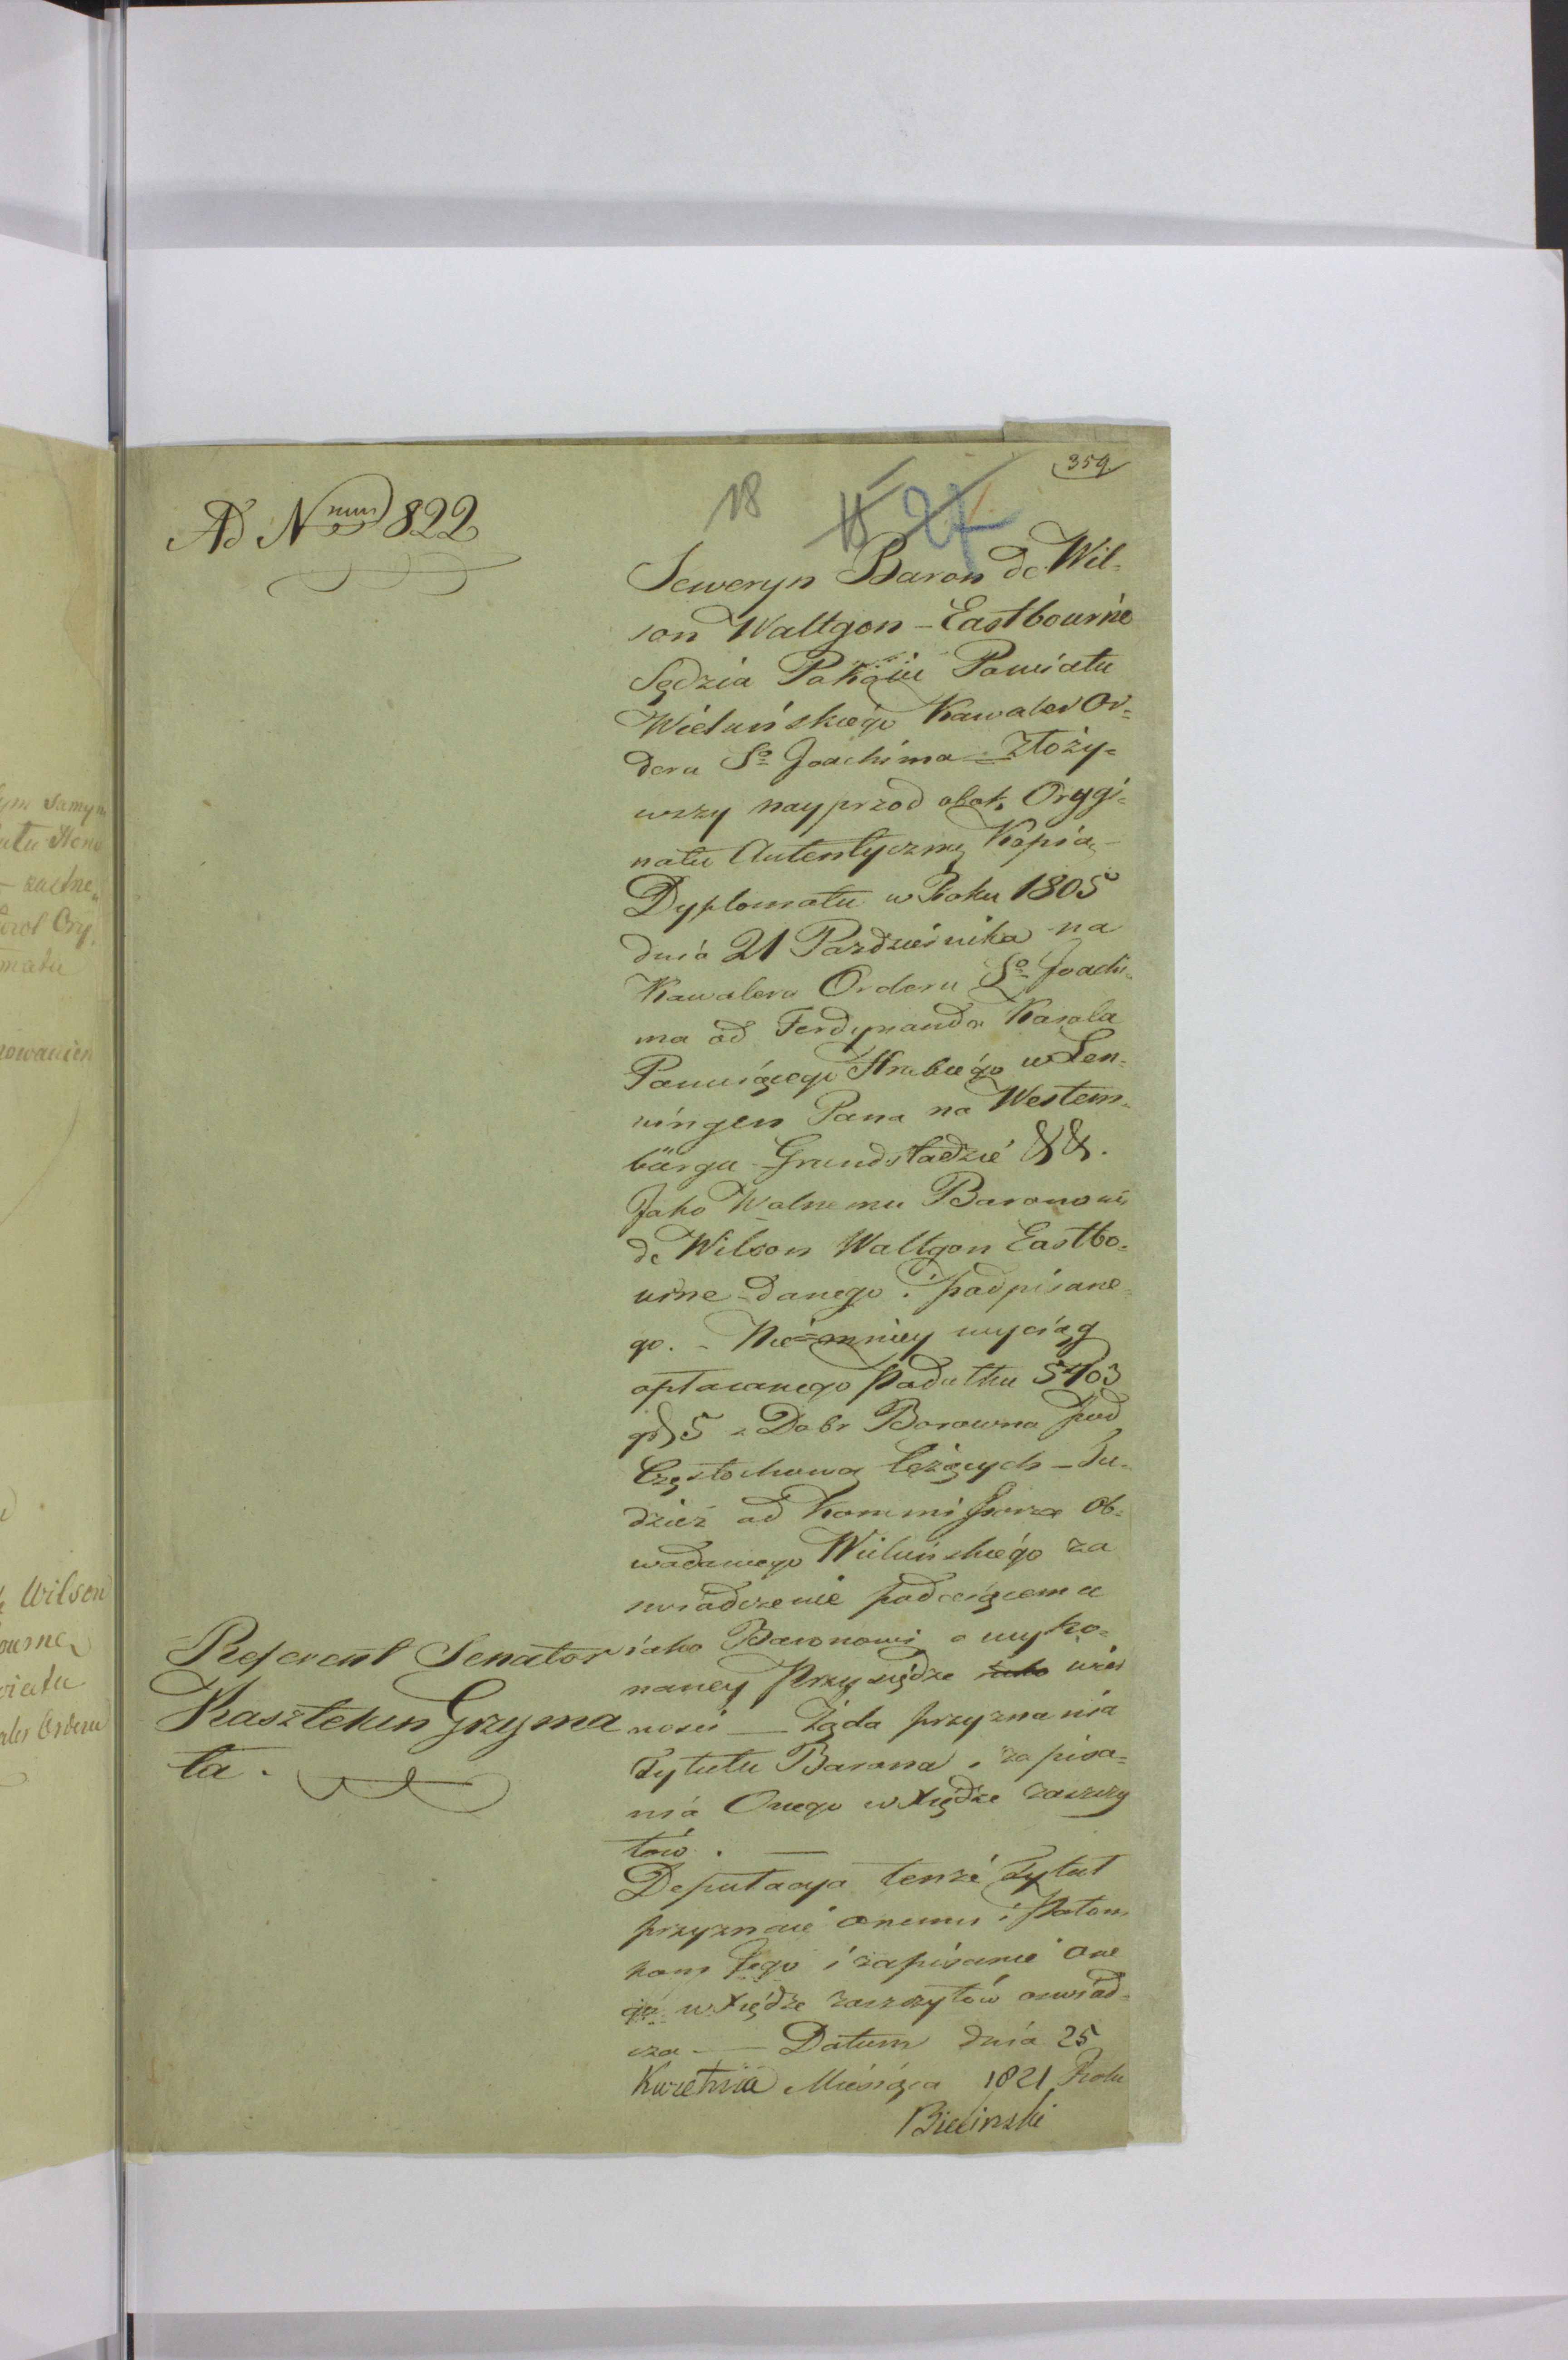 359
18
27
Ad Nrum 822
Seweryn Baron de Wil-
son Waltgon - Eastbourne
Sędzia Pokoiu Powiatu
Wieluńskiego Kawaler Or-
deru Sgo Joachima złoży-
wszy nayprzod obok Orygi-
nału Autentyczną Kopią
Dyplomatu w Roku 1805
dnia 21 Pazdziernika na
Kawalera Orderu Sgo Joachi-
ma od Ferdynanda Karola
Panuiącego Hrabiego w Len-
ningen Pana na Westem-
bürgu Grundstadzie &&.
Jako Wolnemu Baronowi
de Wilson Waltgon Eastbo-
urne danego i podpisane-
go. - Niemniey wyciąg
opłacanego Podatku
z Dobr Borowna pod
Częstochową leżących - Tu-
dzież od Kommissarza Ob-
wodowego Wieluńskiego za
swiadczenie
iako Baronowi o wyko-
naney Przysiędze wier
nosci - Żąda przyznania
Tytułu Barona i zapisa-
nia Onego w Xiędze zaszczy
tów. -
Deputacya tenże Tytuł
przyznaie onemu i Potom
kom Jego i zapisanie One
go w Xiędze zaszczytów oswiad-
cza - Datum dnia 25
Kwietnia Miesiąca 1821 Roku
Bielinski
Referent Senator
Kasztelan Grzyma
ła.
Wilson